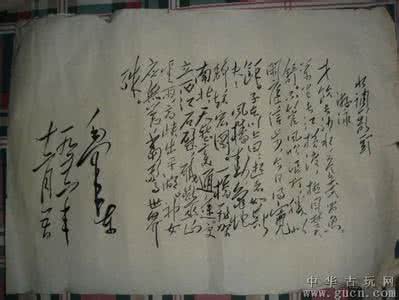 水调歌头
游泳
才饮长沙水又食武昌鱼
万里长江横渡极目楚天
舒不管风吹浪打胜似
闲庭信步今日得宽
馀子在川上曰逝者如斯
夫风樯动龟蛇
静起宏图一桥飞架
南北天堑变通途更
立西江石壁截断巫山
云雨高峡出平湖神女
应无恙当惊世界
殊
毛泽东
一九五六年
十二月五日
中华古玩网
www.gucn.com